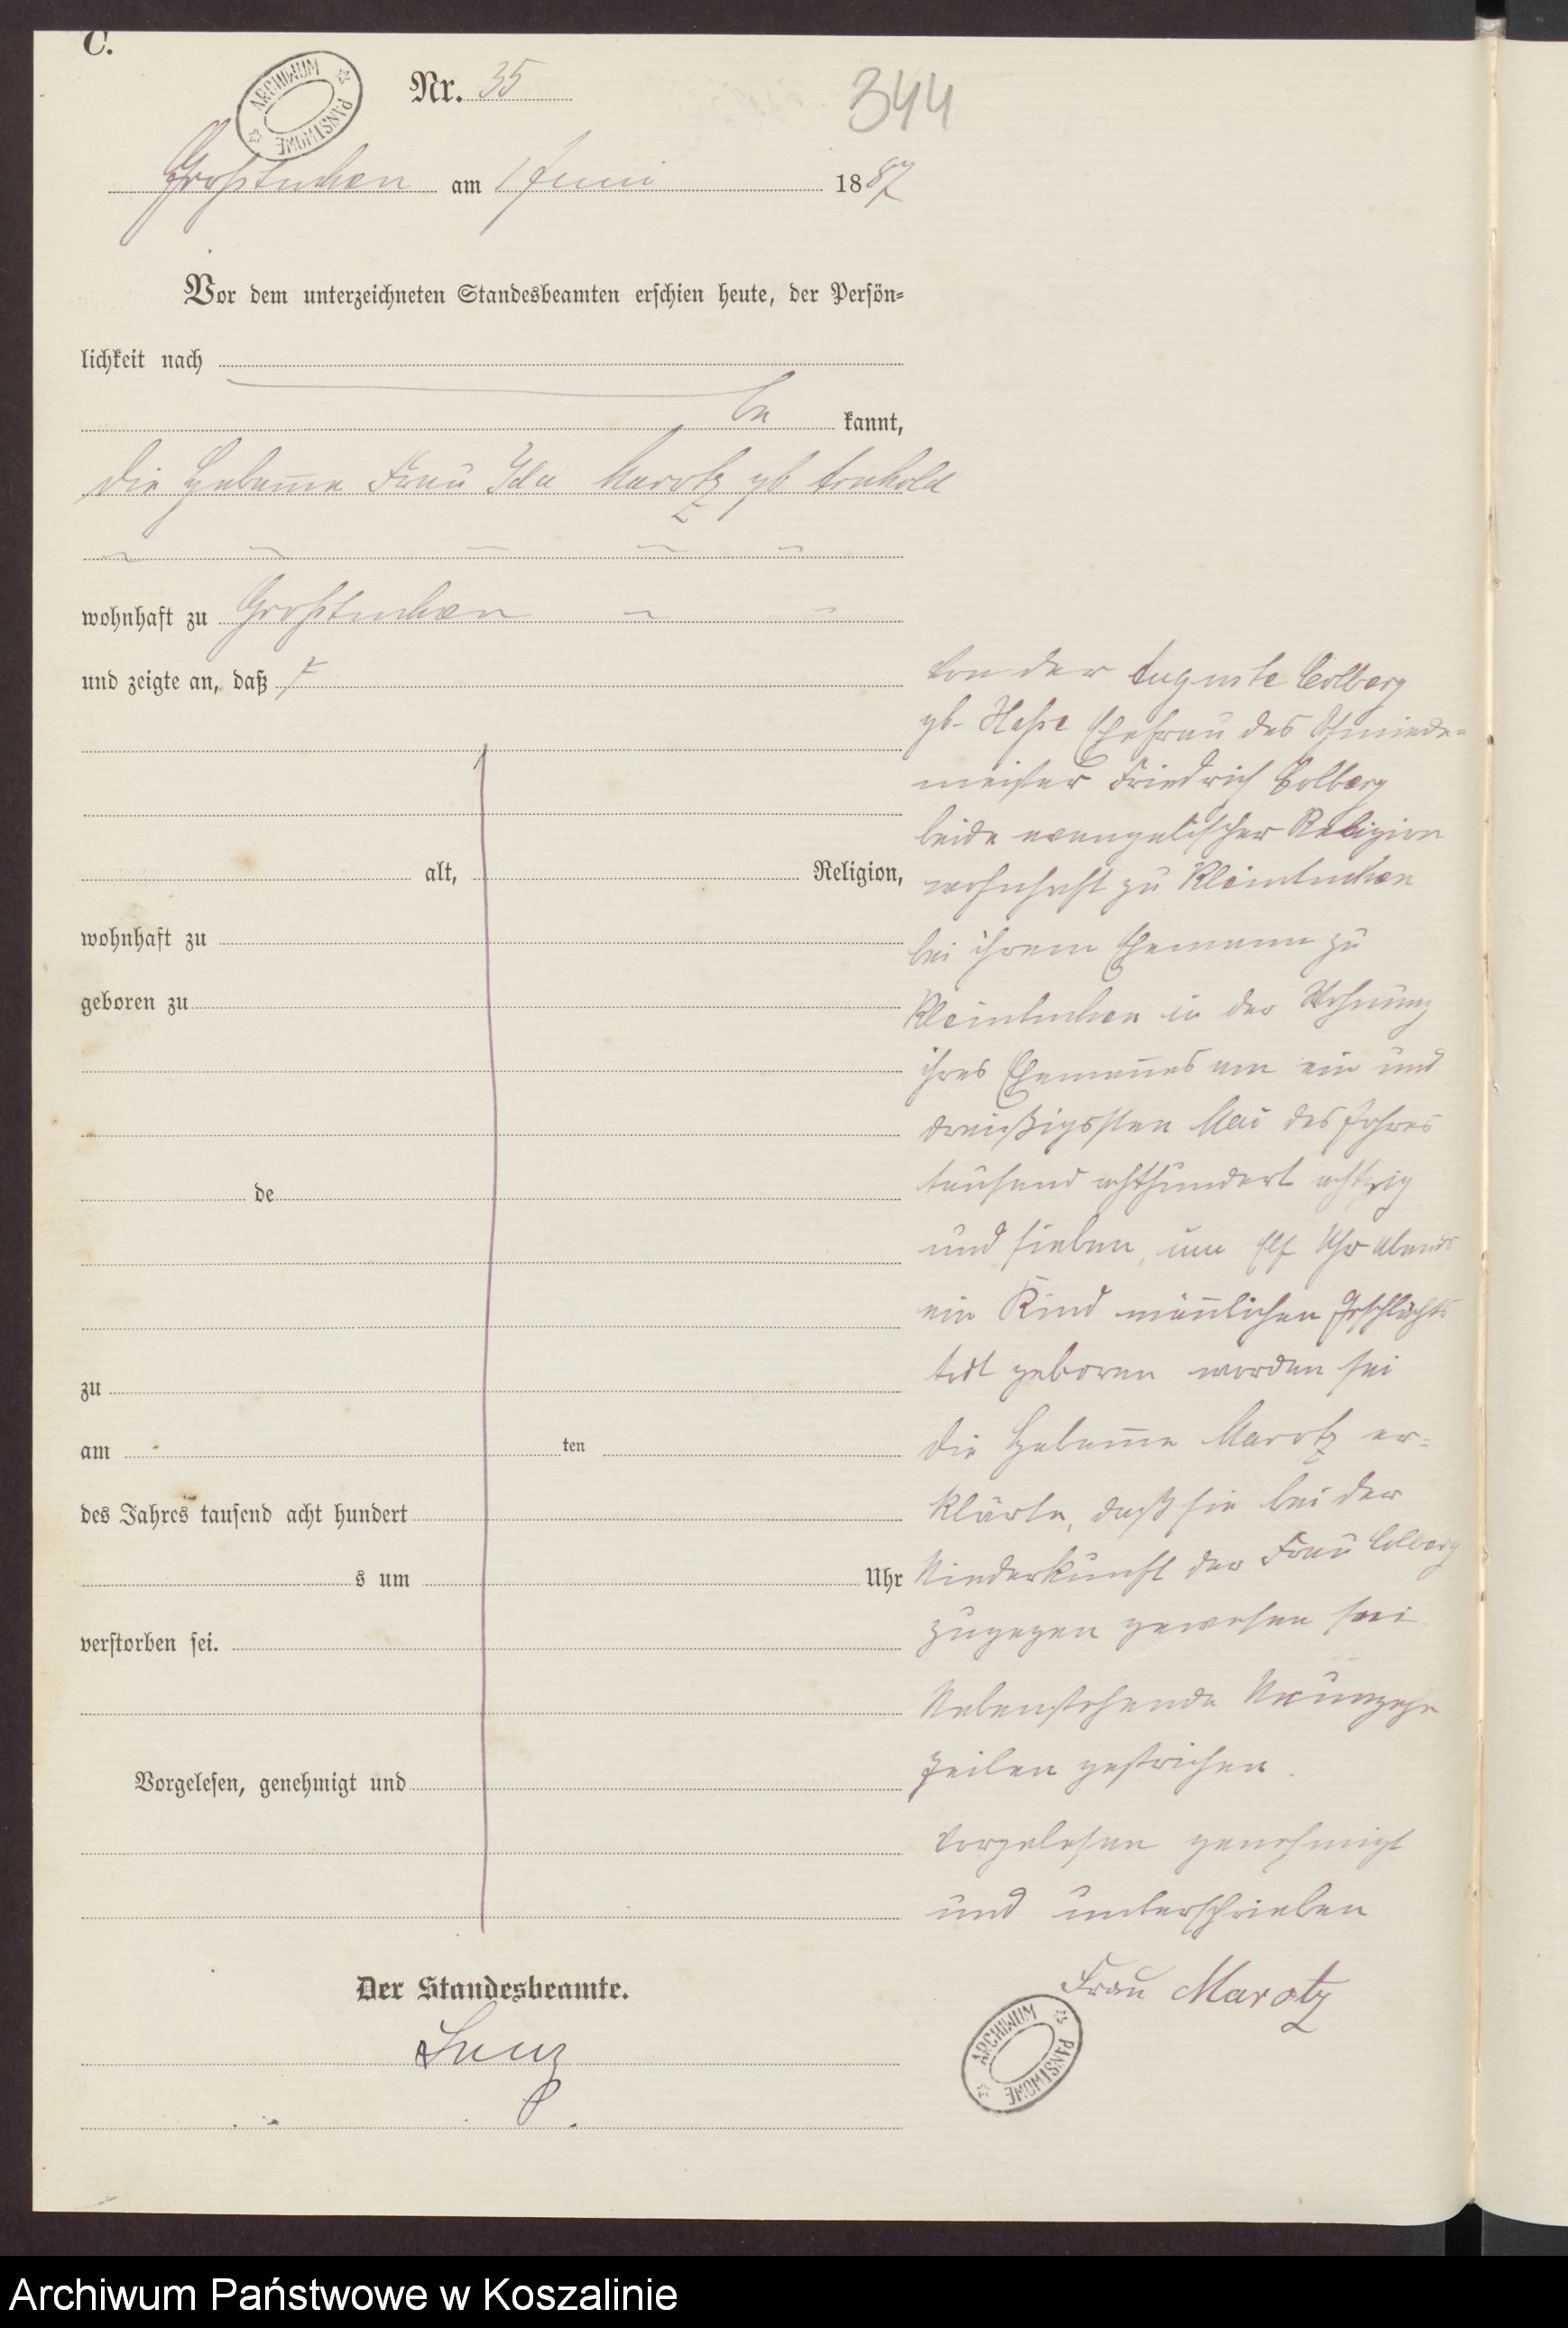 C.
ARCHIWUM PAŃSTWOWE
Nr. 35
344
Großtuchen am 1 Juni 1887
Vor dem unterzeichneten Standesbeamten erschien heute, der Persön-
lichkeit nach
be kannt,
die Hebam̅e Frau Ida Marotz gb Arnhold
wohnhaft zu Großtuchen
und zeigte an, daß
alt, Religion,
wohnhaft zu
geboren zu
de
zu
am ten
des Jahres tausend acht hundert
s um Uhr
verstorben sei.
Vorgelesen, genehmigt und
von der Auguste Colberg
gb. Hesse Ehefrau des Schmiede-
meister Friedrich Colberg
beide evangelischer Religion
wohnhaft zu Kleintuchen
bei ihrem Ehemann zu
Kleintuchen in der Wohnung
ihres Eheman̅es am ein und
dreißigssten Mai des Jahres
tausend achthundert achtzig
und sieben, um Elf Uhr Abends
ein Kind män̅lichen Geschlechts
todt geboren worden sei
die Hebam̅e Marotz er-
klärte, daß sie bei der
Niederkunft der Frau Colberg
zugegen gewesen sei
Nebenstehende Neunzehn
Zeilen gestrichen.
Vorgelesen genehmigt
und unterschrieben
Frau Marotz
Der Standesbeamte.
ARCHIWUM PAŃSTWOWE
Archiwum Państwowe w Koszalinie